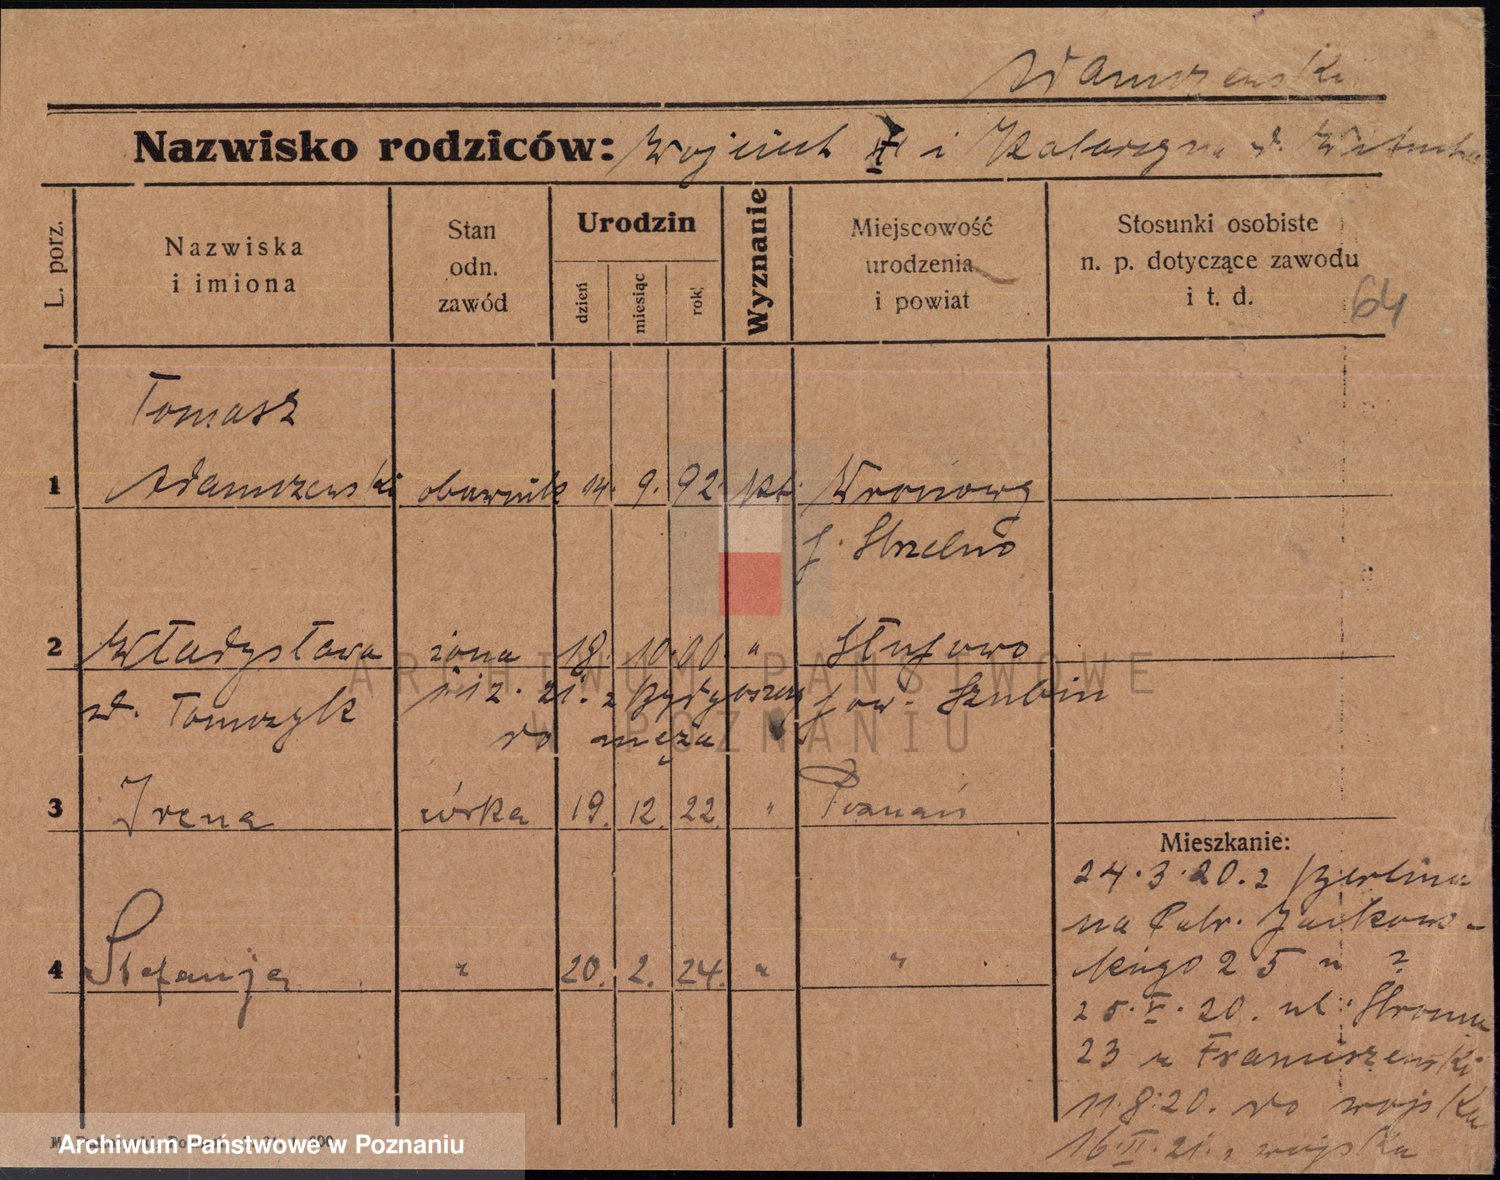 Adamczewski
Nazwisko rodziców: Wojciech i Katarzyna
L. porz.
Nazwiska i imiona
Stan odn. zawód
Urodzin
dzień
miesiąc
rok
Wyznanie
Miejscowość urodzenia i powiat
Stosunki osobiste n. p. dotyczące zawodu i t. d.
64
Tomasz
1 Adamczewski 14. 9. 92. kt. Wronowy
Strzelno
2 Władysława żona 18. 10. "
d. Tomczyk 21. z Bydgoszczy pow. Szubin
do męża
3 Irena córka 19. 12. 22. " Poznań
4 Stefanja " 20. 2. 24. " "
Mieszkanie:
24.3.20. z Berlina
na Patr. Jackow-
kiego 25 u ?
25.V.20. ul. Stroma
23 u Franciszewski
11.8.20. do wojska
16.II.21. z wojska
ARCHIWUM PAŃSTWOWE
W POZNANIU
Archiwum Państwowe w Poznaniu